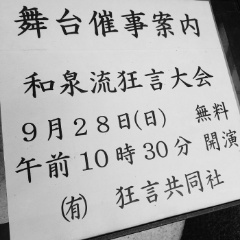 舞台催事案内
和泉流狂言大会
9月28日(日) 無料
午前10時30分 開演
㈲ 狂言共同社